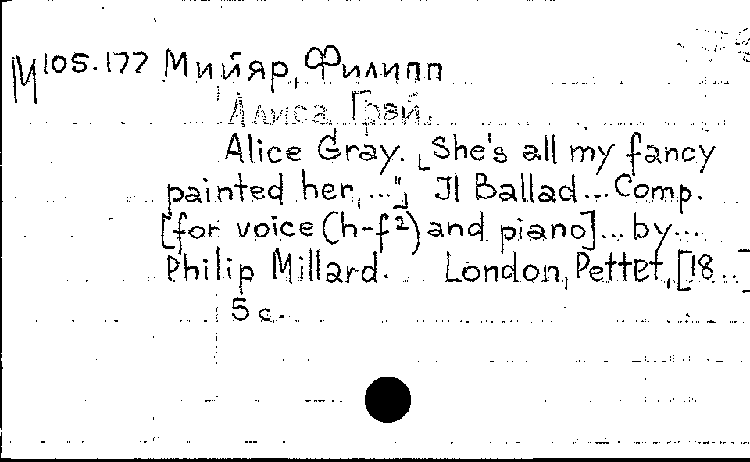 М105.177 Мийяр, Филипп
Алиса Грэй.
Alice Gray. „She's all my fancy
painted her, ..." Il Ballad... Comp.
[for voice (h-f²) and piano]... by...
Philip Millard. London, Pettet, [18..]
5 с.